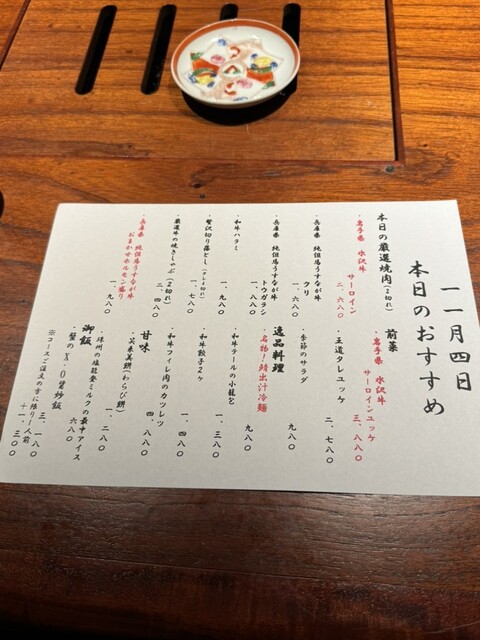 一一月四日
本日のおすすめ
本日の厳選焼肉(2切れ)
・岩手県 水沢牛
サーロイン
二、六八〇
・兵庫県 純但馬うすなが牛
クリ
一、六八〇
・兵庫県 純但馬うすなが牛
トウガラシ
一、八八〇
・和牛ハラミ
一、九八〇
・贅沢切り落とし
一、七八〇
・厳選牛の焼きしゃぶ(2切れ)
二、四八〇
・兵庫県 純但馬うすなが牛
おまかせホルモン盛り
一、九八〇
前菜
・岩手県 水沢牛
サーロインユッケ
三、八八〇
・王道タレユッケ
二、七八〇
・季節のサラダ
九八〇
逸品料理
・名物!鯖出汁冷麺
九八〇
・和牛テールの小籠包
一、三八〇
・和牛餃子2ヶ
一、四八〇
・和牛フィレ肉のカツレツ
四、八八〇
甘味
・笑来美餅(わらび餅)
一、二八〇
・珠洲の塩能登ミルクの最中アイス
六八〇
御飯
・蟹のX.O醤炒飯
三、一八〇
※コースご注文の方に限り一人前